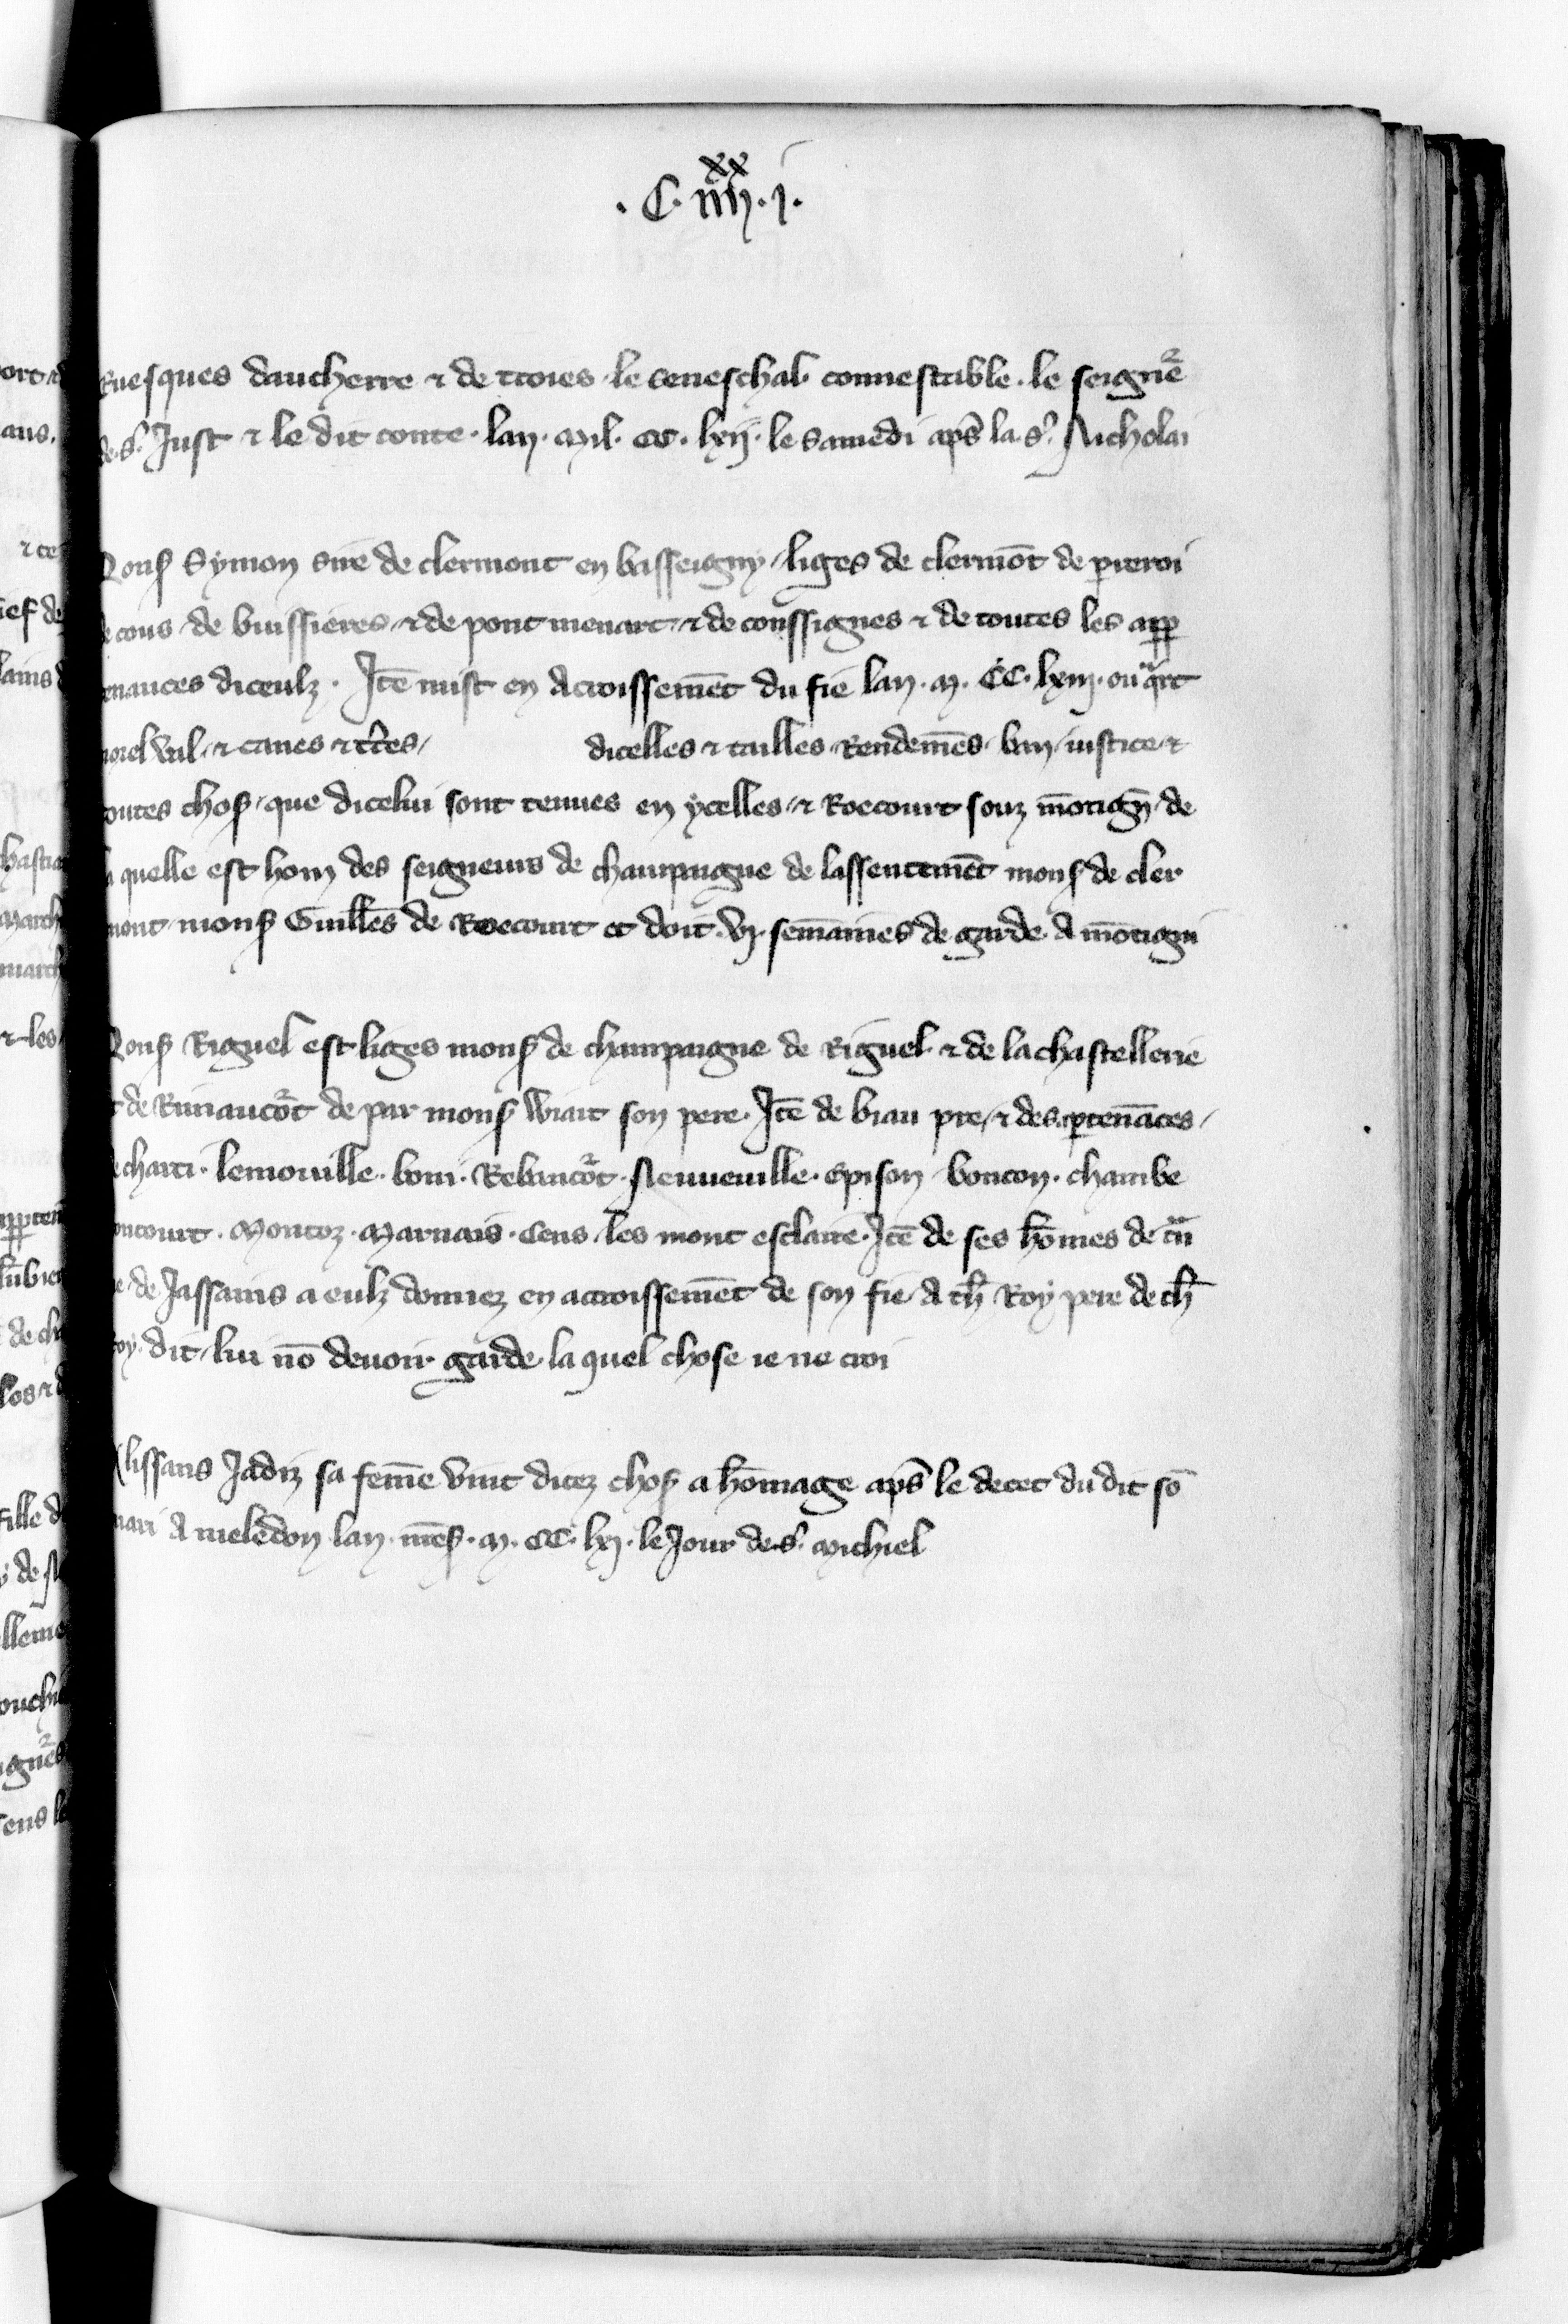 . C. iiij. xx i.
euesques daucherre & de troies . le seneschal . connestable . le seignēr
de s. Just & le dit conte . lan . Mil . CC . lxij . le samedi apˢ la s. Nicholai
Mons Symon sire de clermont en basseigny / liges de clermōt de perroi
de cons . de buissieres . & de pont menart . & de conssignes & de toutes les app
tenances diceulz . Itē mist en Acroissemēt du fie lan . M . CC . lxiij . ou qart
morel val . & caues & tr̄es /
dicelles & tailles . Rendemēs . ban . iustice . &
toutes chos / que dicelui sont tenues en ycelles / & Roecourt souz mōtign̄ / de
la quelle est hom des seigneurs de champaigne de lassentemēt mons de cler
mont mons Guillēs de Roecourt et doit . vj . semāinēs de garde A mōtigni
Mons Riguel est liges mons de champaigne de Riguel & de la chastellerie
& de Rinaucōrt de par mons wiait son pere . Itē de biau pre / & des ptenāces /
de charti . lemonille . boni . Rebancōrt . Neuueuille . Espison . boncon . chambe
roncourt . Montoz . Marnais . Cens . les mont esclaire . Itē de ses hōmes de
de Jassains a eulz donnez en acroissemēt de son fie A th̄ Roy pere de th̄
roy . dit / lui nō deuoir garde . la quel chose ie ne croi
Alissans Jadiz sa femē vint ditez chos a hōmage apˢ le decet du dit sō
mari A meledon lan . mēs . M . CC . lxj . le Jour de s. Michiel